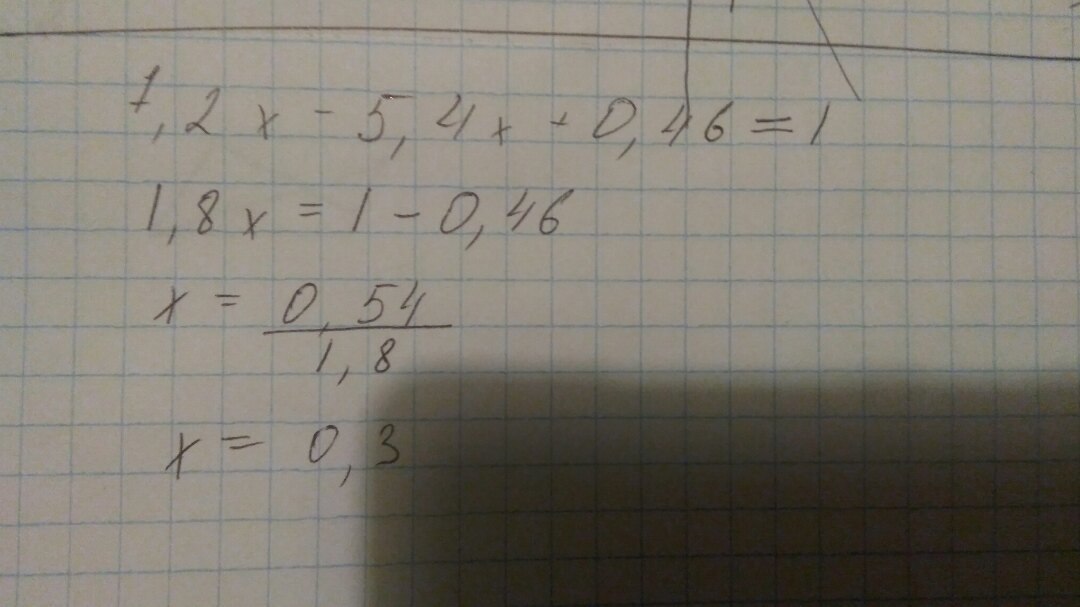 7,2x - 5,4x + 0,46 = 1
1,8x = 1 - 0,46
x = 0,54/1,8
x = 0,3